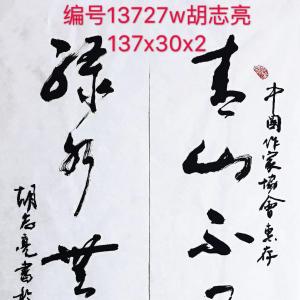 编号13727w胡志亮
137x30x2
中国作家協會惠存
青山不
绿水無
胡志亮書於